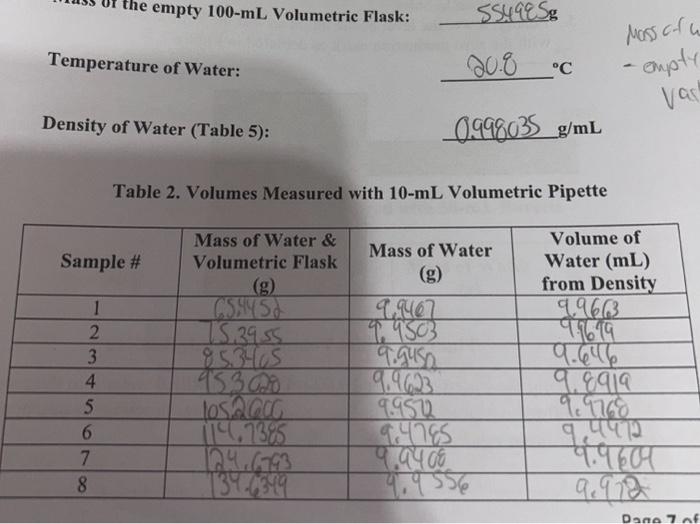 of the empty 100-mL Volumetric Flask: 55.4985g
Mass of
Temperature of Water: 20.8 °C - empty
Density of Water (Table 5): 0.998035 g/mL
Table 2. Volumes Measured with 10-mL Volumetric Pipette
Sample # Mass of Water & Volumetric Flask (g) Mass of Water (g) Volume of Water (mL) from Density
1 65.4452 9.9467 9.9663
2 75.3955 9.9503
3 9.9450 9.646
4 9.9623 9.8919
5 105.2600 9.9572 9.9768
6 114.7385 9.4785 9.4972
7 124.6793 9.9408 9.9604
8 134.6349 9.9556 9.972
Page 7 of